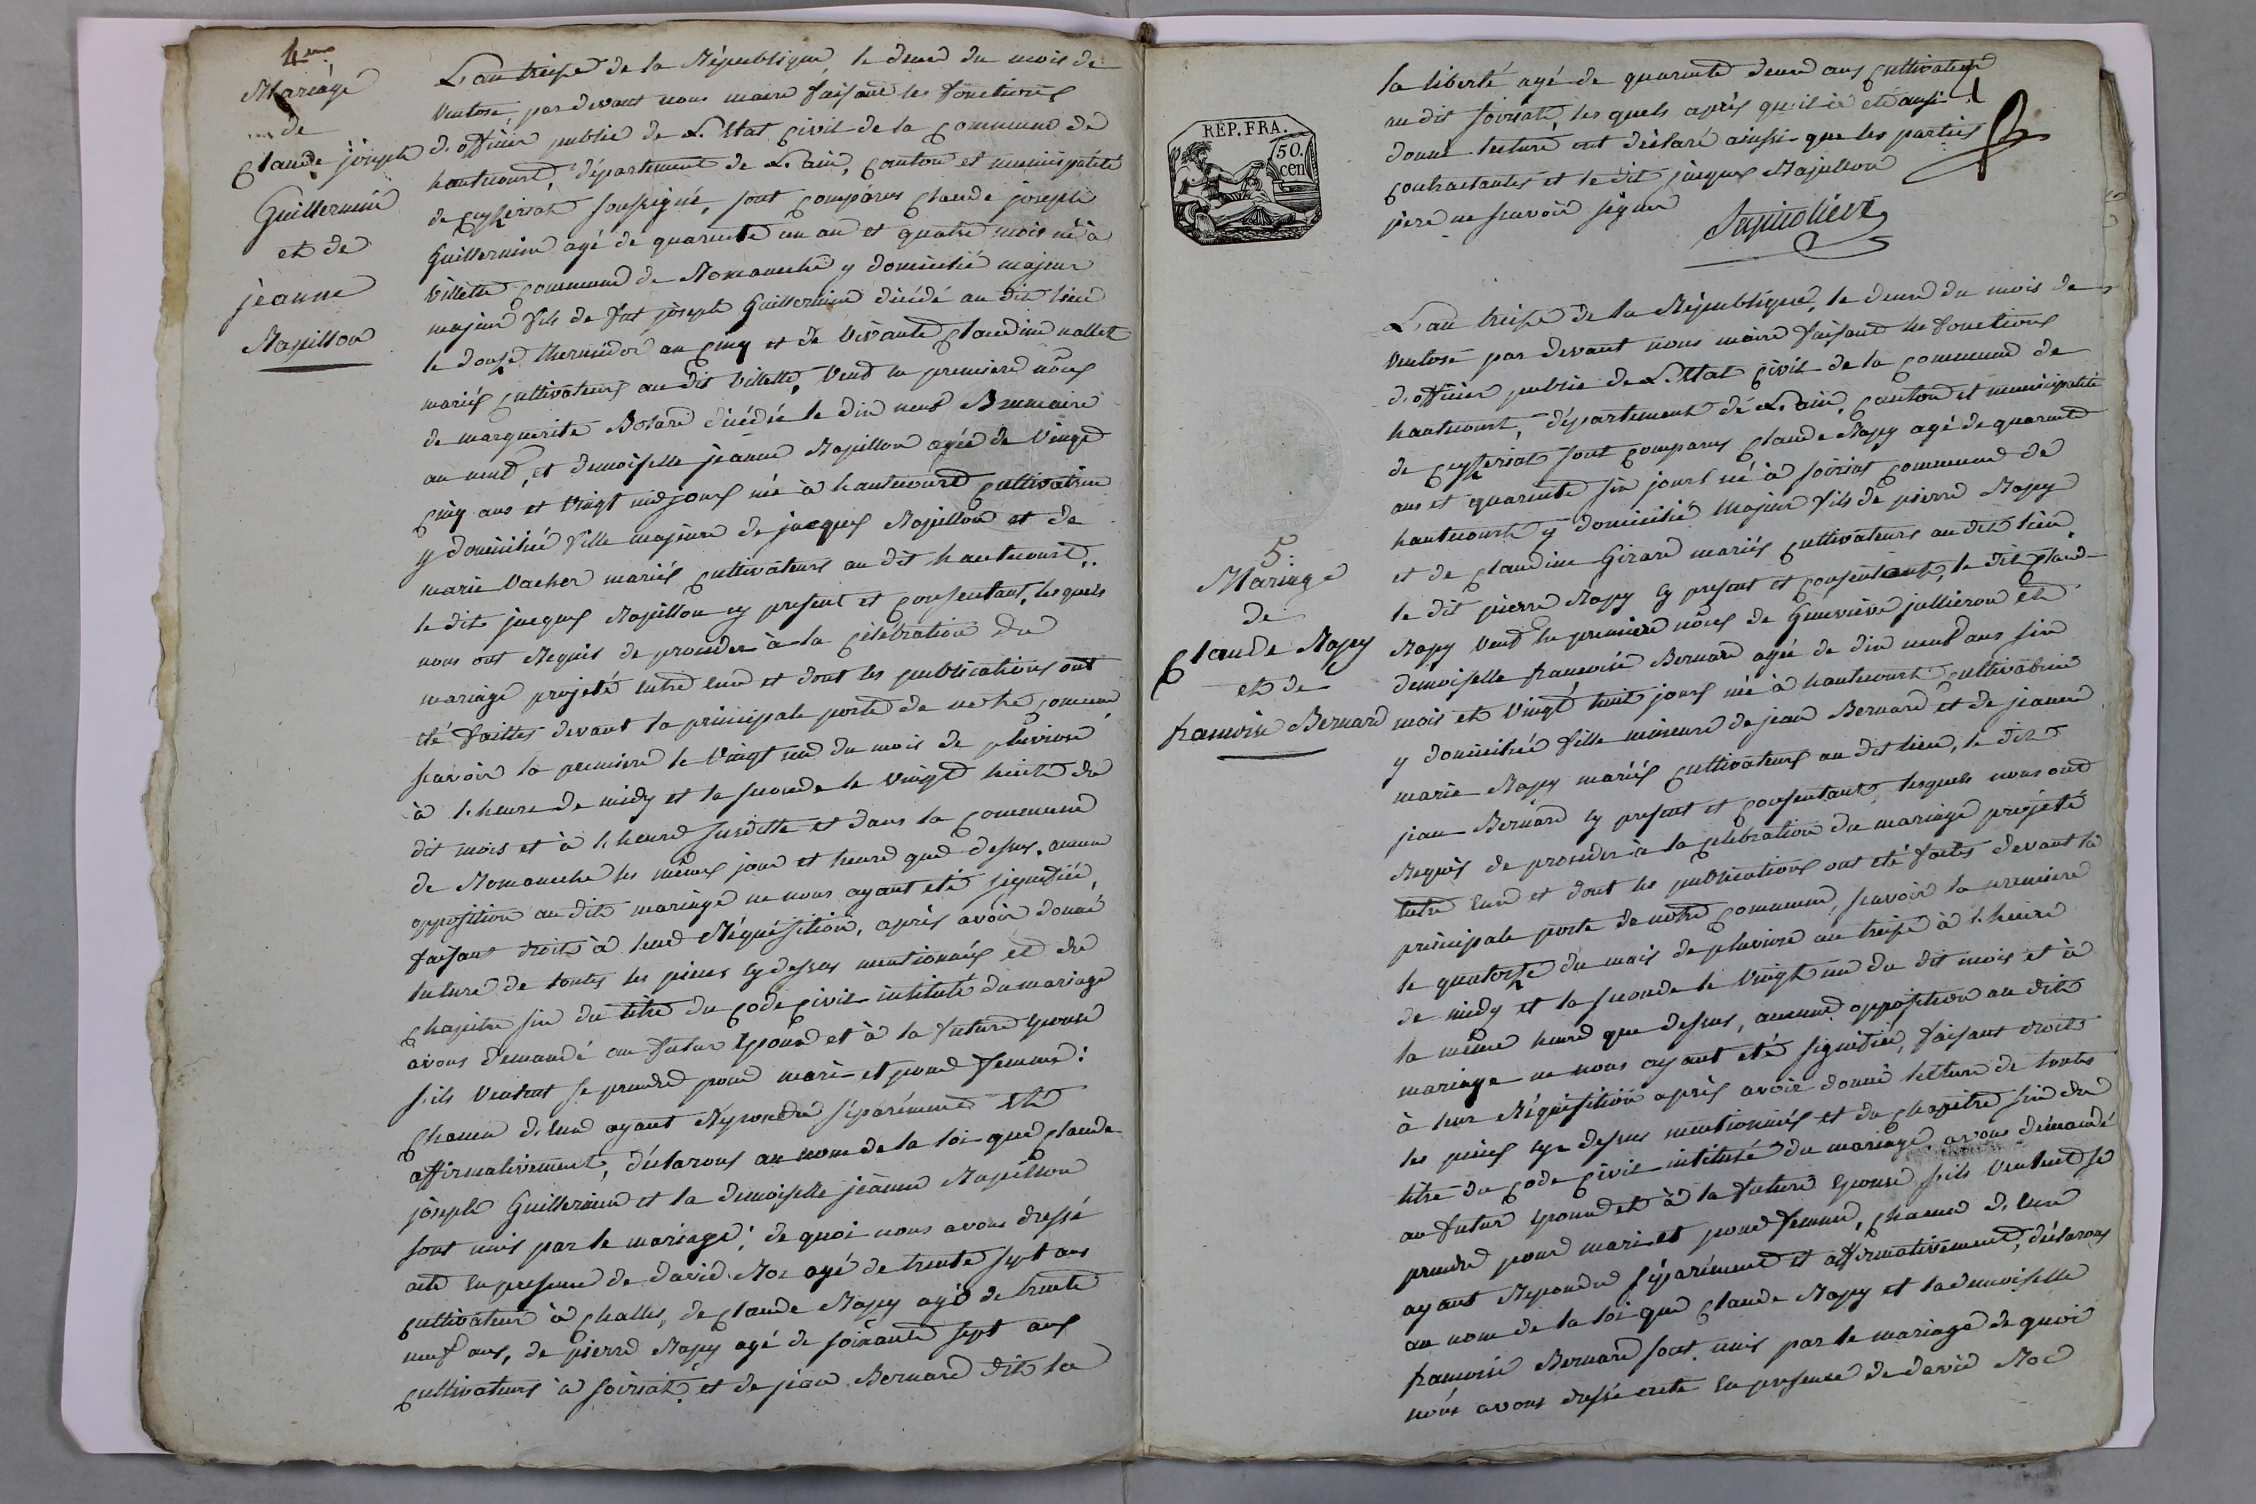 4me
Mariage
de
Claude joseph
Guillermin
et de
jeanne
Rapillon
L'an treize de la République, le deux du mois de
Ventose, par devant nous maire faisant les fonctions
d'officier public de L'Etat Civil de la Commune de
hautecourt, département de L'ain, Canton et municipalité
de Ceyzeriat soussigné, sont Comparus Claude joseph
Guillermin agé de quarante un an et quatre mois né à
Villette Commune de Romaneche y domicilié majeur
majeur fils de fut joseph Guillermin décédé au dit lieu
le douze thermidor an Cinq et de Vivante Claudine nallet
mariés Cultivateurs au dit Villette, Veuf en premiere nôces
de marguerite Bolard décédée le dix neuf Brumaire
an neuf, et demoiselle jeanne Rapillon agée de Vingt
Cinq ans et Vingt jours née à hautecourt Cultivatrice
y domiciliée fille majeure de jacques Rapillon et de
marie Vacher mariés Cultivateurs au dit hautecourt,
le dit jacques Rapillon cy present et Consentant, lesquels
nous ont Requis de proceder à la Célébration du
mariage projeté entre eux et dont les publications ont
été faittes devant la principale porte de notre Commune
scavoir la premiere le Vingt un du mois de pluviose
à l'heure de midy et la seconde le Vingt huit du
dit mois et à l'heure susditte et dans la Commune
de Romaneche les mêmes jour et heure que dessus. aucune
opposition au dit mariage ne nous ayant eté signifiée,
faisant droit à leur Réquisition, après avoir donné
lecture de toutes les pieces cy dessus mentionnés et du
Chapitre six du titre du Code Civil intitulé du mariage
avons demandé au futur Epoux et à la future Epouse
s'ils Veulent se prendre pour mari et pour femme:
Chacun d'eux ayant Répondu séparément et
affirmativement, déclarons au nom de la loi que Claude
joseph Guillermin et la demoiselle jeanne Rapillon
sont unis par le mariage; de quoi nous avons dressé
acte En presence de david Roc agé de trente sept ans
Cultivateur à Challes, de Claude Rapy agé de trente
neuf ans, de pierre Rapy agé de soixante sept ans
Cultivateurs à soiriat, et de jean Bernard dit la
la liberté agé de quarante deux ans Cultivateur
au dit soiriat, les quels après qu'il à été aussi
donné lecture ont déclaré ainssi que les parties
Contractantes et le dit jacques Rapillon
père ne scavoir signer
REP. FRA.
50.
cen
5.
Mariage
de
Claude Rapy
et de
francoise Bernard
L'an treize de la République, le deux du mois de
Ventose par devant nous maire faisant les fonctions
d'officier public de L'Etat Civil de la Commune de
hautecourt, département de L'ain, Canton et municipalité
de Ceyzeriat sont Comparus Claude Rapy agé de quarante
ans et quarante six jours né à soiriat Commune de
hautecourt y domicilié Majeur fils de pierre Rapy
et de Claudine Girard mariés Cultivateurs au dit lieu,
le dit pierre Rapy Cy present et Consentant, le dit Claude
Rapy Veuf en premiere nôces de Genevieve jullieron et
demoiselle francoise Bernard agée de dix neuf ans six
mois et Vingt huit jours née à hautecourt Cultivatrice
y domiciliée fille mineure de jean Bernard et de jeanne
marie Rapy mariés Cultivateurs au dit lieu, le dit
jean Bernard Cy present et Consentant, lesquels nous ont
Requis de proceder à la Célébration du mariage projeté
entre Eux et dont les publications ont été faites devant la
principale porte de notre Commune, scavoir la premiere
le quatorze du mois de pluviose an treize à l'heure
de midy et la seconde le Vingt un du dit mois et à
la même heure que dessus, aucune opposition au dit
mariage ne nous ayant eté signifiée, faisant droit
à leur Réquisition après avoir donné lecture de toutes
les pieces cy dessus mentionnés et du Chapitre six du
titre du Code Civil intitulé du mariage, avons démandé
au futur Epoux et à la future Epouse s'ils Veulent se
prendre pour mari et pour femme, Chacun d'eux
ayant Repondu séparément et affirmativement, déclarons
au nom de la loi que Claude Rapy et la demoiselle
francoise Bernard sont unis par le mariage de quoi
nous avons dressé acte En presence de david Roc